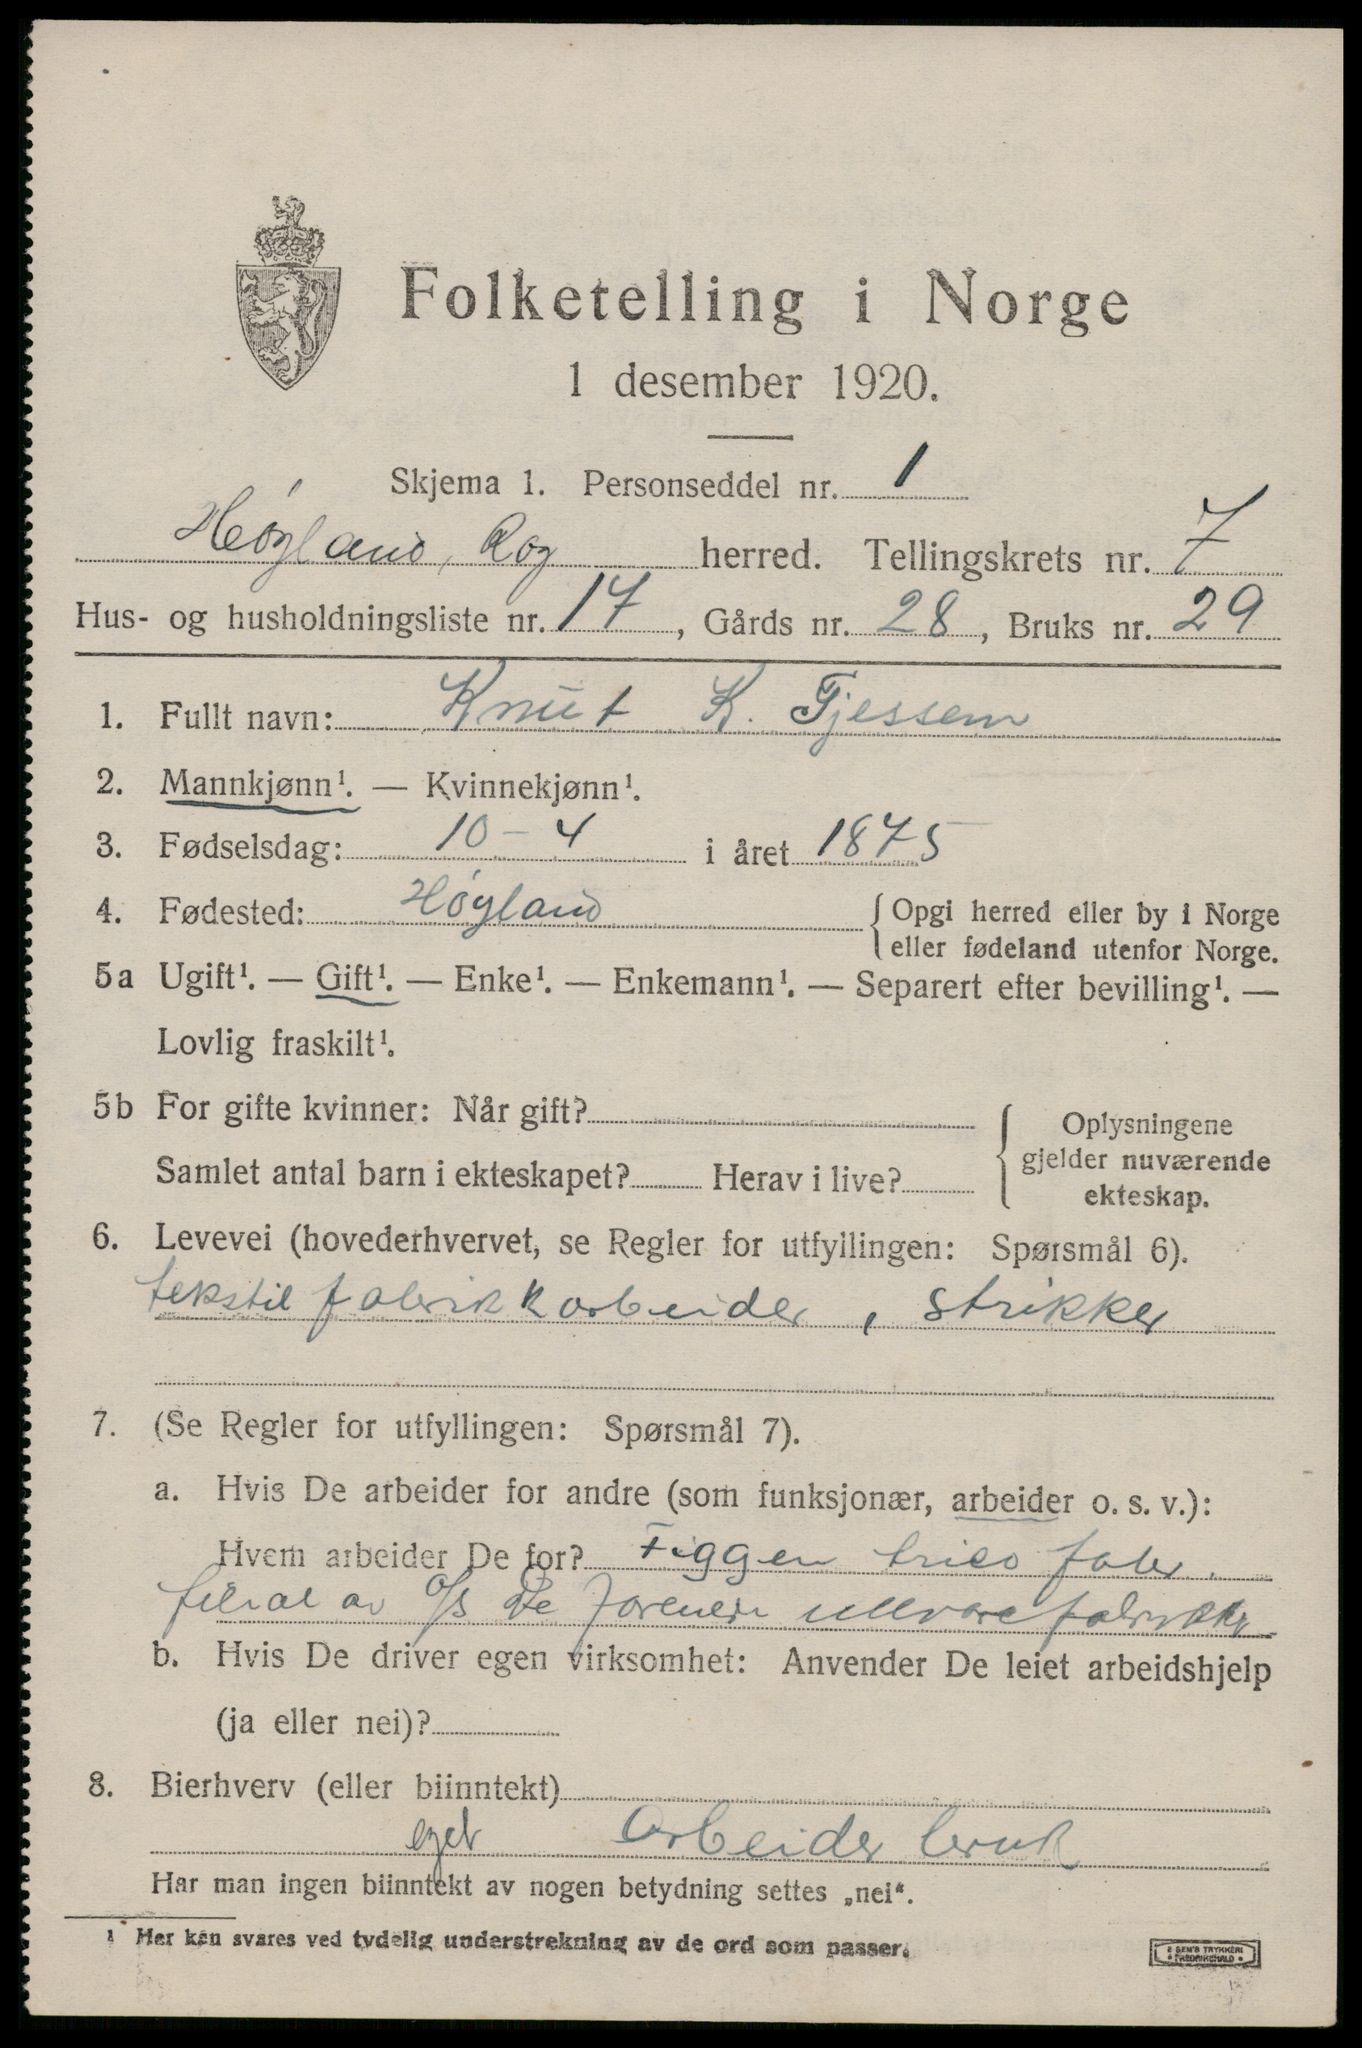 Folketelling i Norge
1 desember 1920.
Skjema 1. Personseddel nr. 1
Høyland, Rog herred. Tellingskrets nr. 7
Hus- og husholdningsliste nr. 17, Gårds nr. 28, Bruks nr. 29
1. Fullt navn: Knut K. Fjessem
2. Mannkjønn¹. — Kvinnekjønn¹.
3. Fødselsdag: 10-4 i året 1875
4. Fødested: Høyland {Opgi herred eller by i Norge
eller fødeland utenfor Norge.
5a Ugift¹. — Gift¹. — Enke¹. — Enkemann¹. — Separert efter bevilling¹. —
Lovlig fraskilt¹.
5b For gifte kvinner: Når gift?
Samlet antal barn i ekteskapet? Herav i live?
Oplysningene
gjelder nuværende
ekteskap.
6. Levevei (hovederhvervet, se Regler for utfyllingen: Spørsmål 6).
tekstil fabrikkarbeider, strikker
7. (Se Regler for utfyllingen: Spørsmål 7).
a. Hvis De arbeider for andre (som funksjonær, arbeider o. s. v.):
Hvem arbeider De for? Figgen trico fabr.
filial av A/S De forenede ullvarefabrikker
b. Hvis De driver egen virksomhet: Anvender De leiet arbeidshjelp
(ja eller nei)?
8. Bierhverv (eller biinntekt)
eget Arbeider bruk
Har man ingen biinntekt av nogen betydning settes „nei“.
¹ Her kan svares ved tydelig understrekning av de ord som passer.